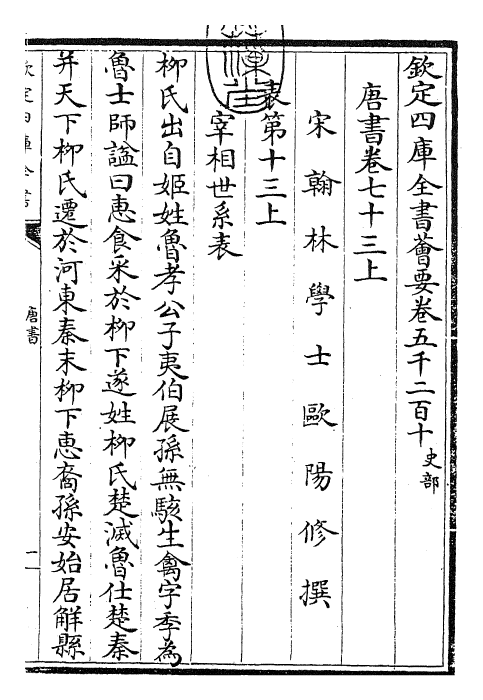 欽定四庫全書薈要卷五千二百十 史部
唐書卷七十三上
宋翰林學士歐陽修撰
表第十三上
宰相世系表
柳氏出自姬姓魯孝公子夷伯展孫無駭生禽字季為
魯士師諡曰惠食采於柳下遂姓柳氏楚滅魯仕楚秦
并天下柳氏遷於河東秦末柳下惠裔孫安始居解縣
欽定四庫全書
唐書
一